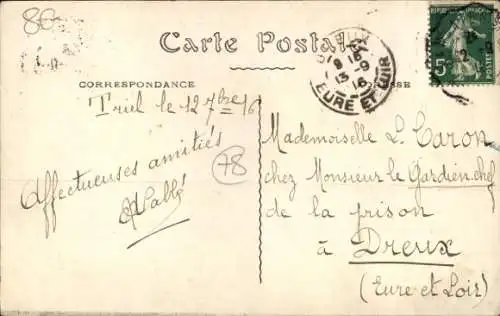 80
Carte Postale
CORRESPONDANCE
Triel le 12 7bre 16
Affectueuses amitiés
78
Mademoiselle L. Caron
chez Monsieur le Gardien-chef
de la prison
à Dreux
(Eure et Loir)
8 15
13-9
16
EURE ET LOIR
RÉPUBLIQUE FRANÇAISE
5c
POSTES